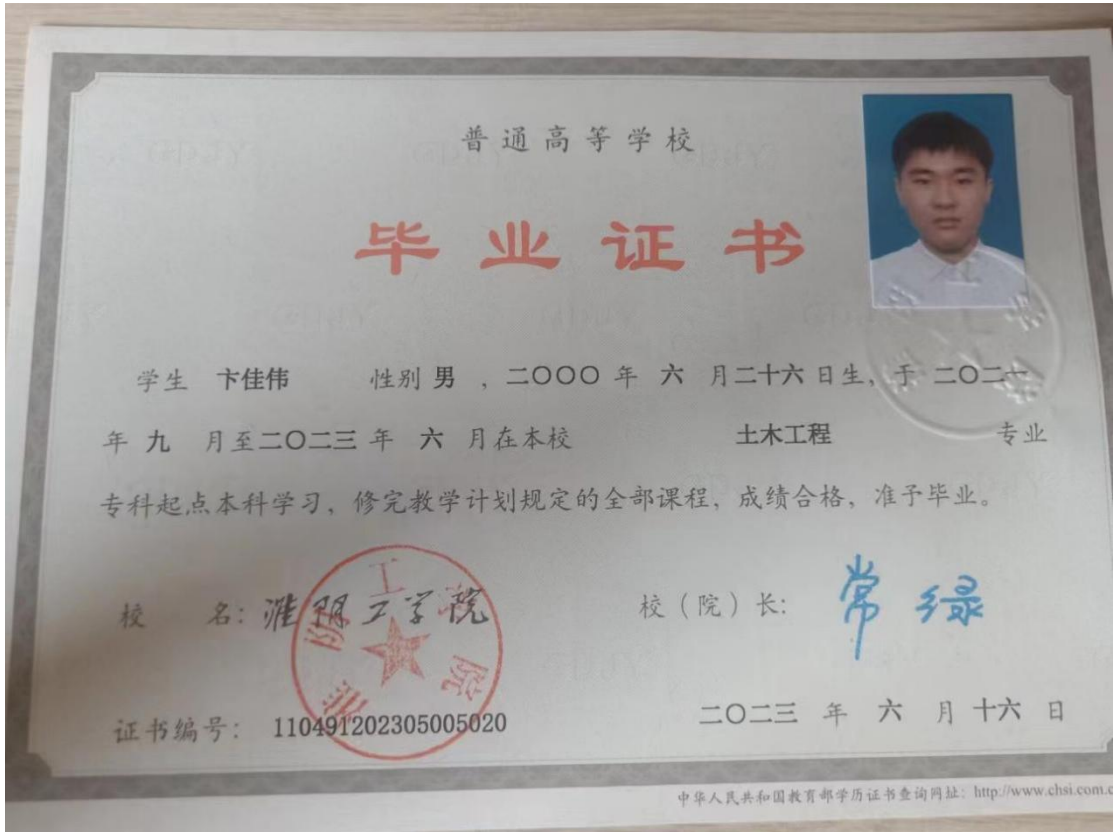 普通高等学校
毕业证书
学生 卞佳伟 性别 男 ，二〇〇〇 年 六 月二十六 日生，于 二〇二一
年 九 月至二〇二三 年 六 月在本校 土木工程 专业
专科起点本科学习，修完教学计划规定的全部课程，成绩合格，准予毕业。
校 名：淮阴工学院 校（院）长：常绿
淮阴工学院
证书编号： 110491202305005020 二〇二三 年 六 月 十六 日
中华人民共和国教育部学历证书查询网址：http://www.chsi.com.c